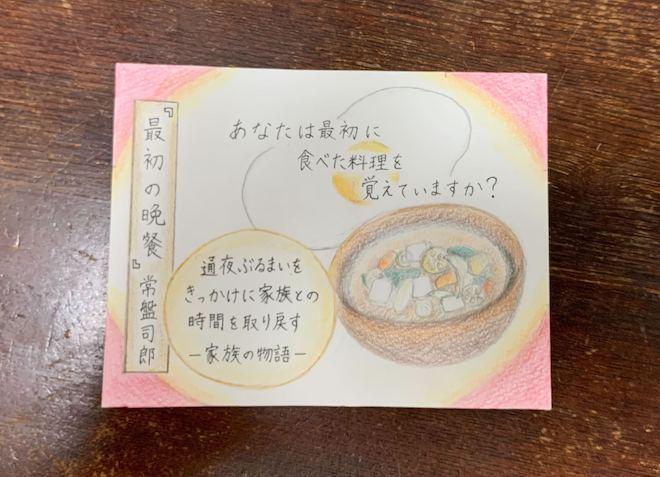 『最初の晩餐』常盤司郎
あなたは最初に
食べた料理を
覚えていますか?
通夜ぶるまいを
きっかけに家族との
時間を取り戻す
ー家族の物語ー